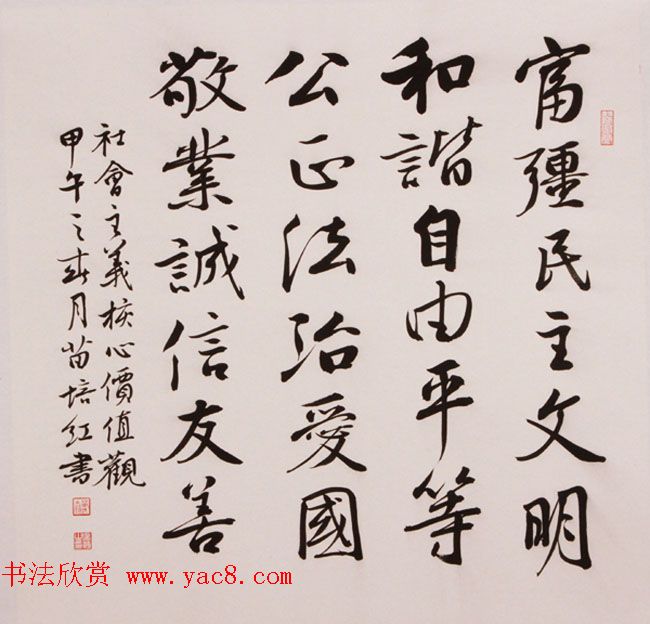 富彊民主文明
和諧自由平等
公正法治愛國
敬業誠信友善
社會主義核心價值觀
甲午之春月苗培红書
书法欣赏 www.yac8.com